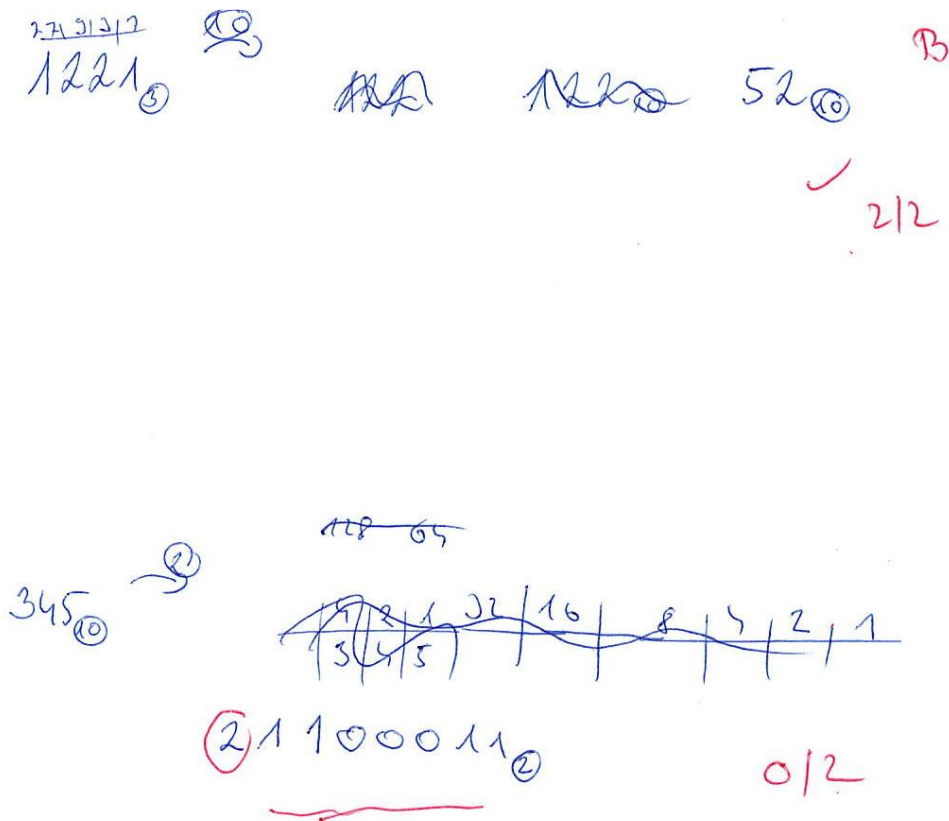 27 9 3 1
1221 (3) (10)
52 (10)
B
2/2
128 64
345 (10) (2)
4 2 1 32 16 8 4 2 1
3 4 5
211100011 (2)
0/2